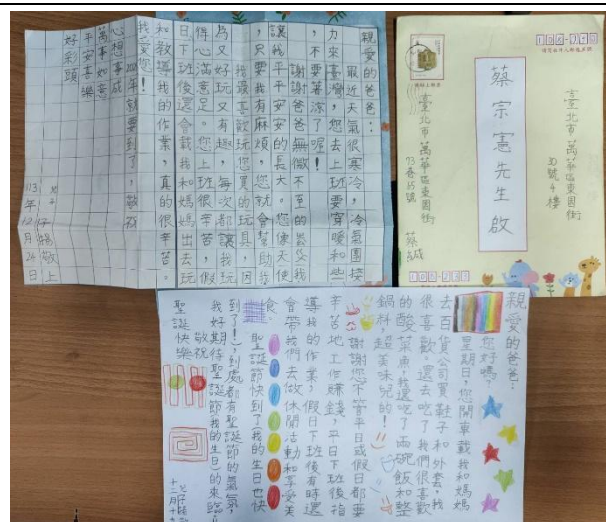 親愛的爸爸：
最近天氣很寒冷，冷氣團接
力來臺灣，您去上班要穿暖和些
，不要著涼了喔！
謝謝爸爸無微不至的養我
讓我平平安安的長大。您像天使
，只要我有麻煩，您就會幫助我
我最喜歡玩您買的玩具，因
為又好玩又有趣，每次都讓我玩
得心滿意足。您上班很辛苦，假
日下班後還會載我和媽媽出去玩
和教導我的作業，真的很辛苦。
我愛您！
年就要到了，敬祝
心想事成
萬事如意
平安喜樂
好彩頭
敬上
113年12月26日
臺北市萬華區東園街
30號4樓
蔡宗憲先生啟
臺北市萬華區東園街
73巷65號
蔡
親愛的爸爸：
您好嗎？
星期日，您開車載我和媽媽
去百貨公司買鞋子和外套，我
很喜歡。還去吃了我們很喜歡
的酸菜魚，我還吃了兩碗飯和整
鍋料，超美味兒的！
謝謝您不管平日或假日都要
辛苦地工作賺錢，平日下班後指
導我的作業，假日下班後有時還
會帶我們去做休閒活動和享受美
食。
聖誕節快到了（我的生日也快
到了！），到處都有聖誕節的氣氛，
我好期待聖誕節（我的生日）的來臨！
敬祝
聖誕快樂